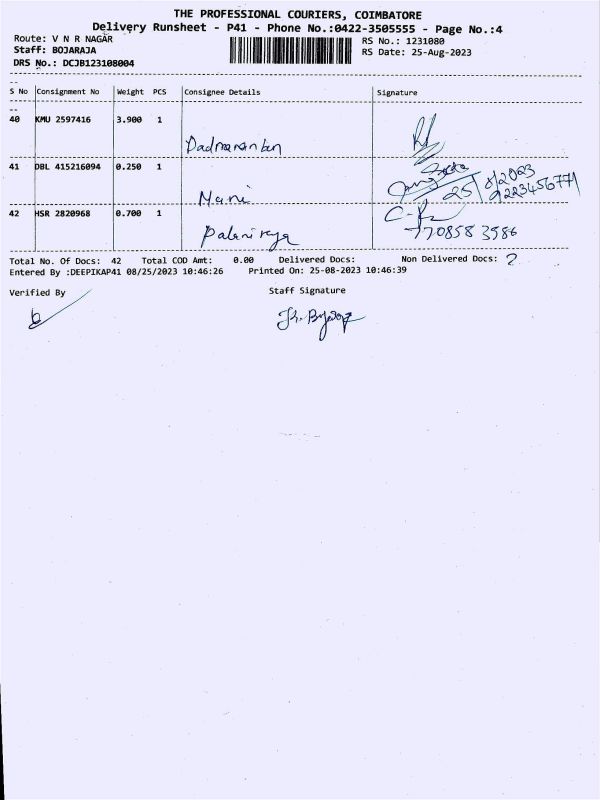 THE PROFESSIONAL COURIERS, COIMBATORE
Delivery Runsheet - P41 - Phone No.:0422-3505555 - Page No.:4
Route: V N R NAGAR
RS No.: 1231080
Staff: BOJARAJA
RS Date: 25-Aug-2023
DRS No.: DCJB123108004
S No Consignment No Weight PCS Consignee Details Signature
40 KMU 2597416 3.900 1
Padmananban
41 DBL 415216094 0.250 1
25/8/2023
Mani
42 HSR 2820968 0.700 1
Palaniraja
Total No. Of Docs: 42 Total COD Amt: 0.00 Delivered Docs: Non Delivered Docs: 2
Entered By :DEEPIKAP41 08/25/2023 10:46:26 Printed On: 25-08-2023 10:46:39
Verified By Staff Signature